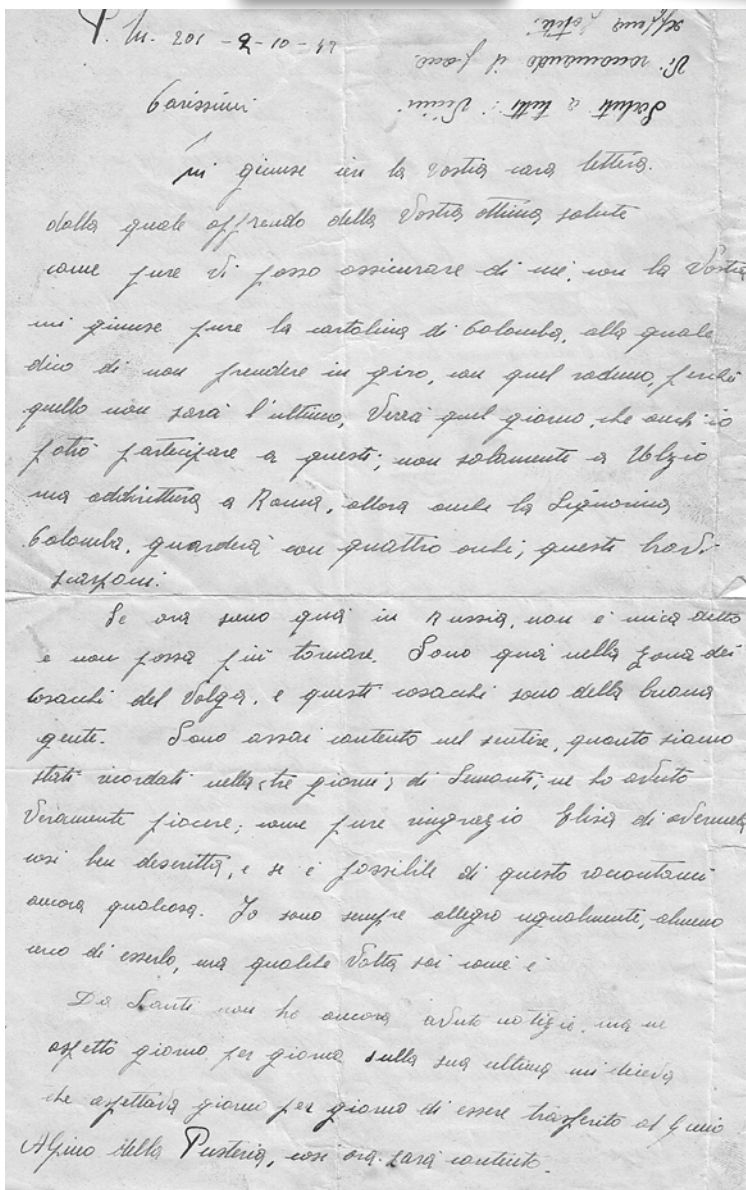 P. M. 201 - 2-10-42
Carissimi
Mi giunse ieri la vostra cara lettera.
dalla quale apprendo della Vostra ottima salute
come pure Vi posso assicurare di me, con la Vostra
mi giunse pure la cartolina di Colomba, alla quale
dico di non prendere in giro, con quel raduno, perché
quello non sarà l'ultimo, Verrà quel giorno, che anch'io
potrò partecipare a questi; non solamente a Ulzio
ma addirittura a Roma, allora anche la Signorina
Colomba, guarderà con quattro occhi; questi bravi
scarponi.
Se ora sono quà in Russia, non è mica detto
e non possa più tornare. Sono quà nella zona dei
cosacchi del Volga, e questi cosacchi sono della buona
gente. Sono assai contento nel sentire, quanto siamo
stati ricordati nella tre giorni di ; ne ho avuto
Veramente piacere; come pure ringrazio Elisa di avermela
così ben descritta, e se è possibile di questo raccontami
ancora qualcosa. Io sono sempre allegro ugualmente, almeno
cerco di esserlo, ma qualche Volta sai come è
Da Santi non ho ancora avuto notizie, ma ne
aspetto giorno per giorno sulla sua ultima mi diceva
che aspettava giorno per giorno di essere trasferito al
Alpino della Pusteria, così ora sarà contento.
Saluti a tutti: Vicini
Vi raccomando il pacco